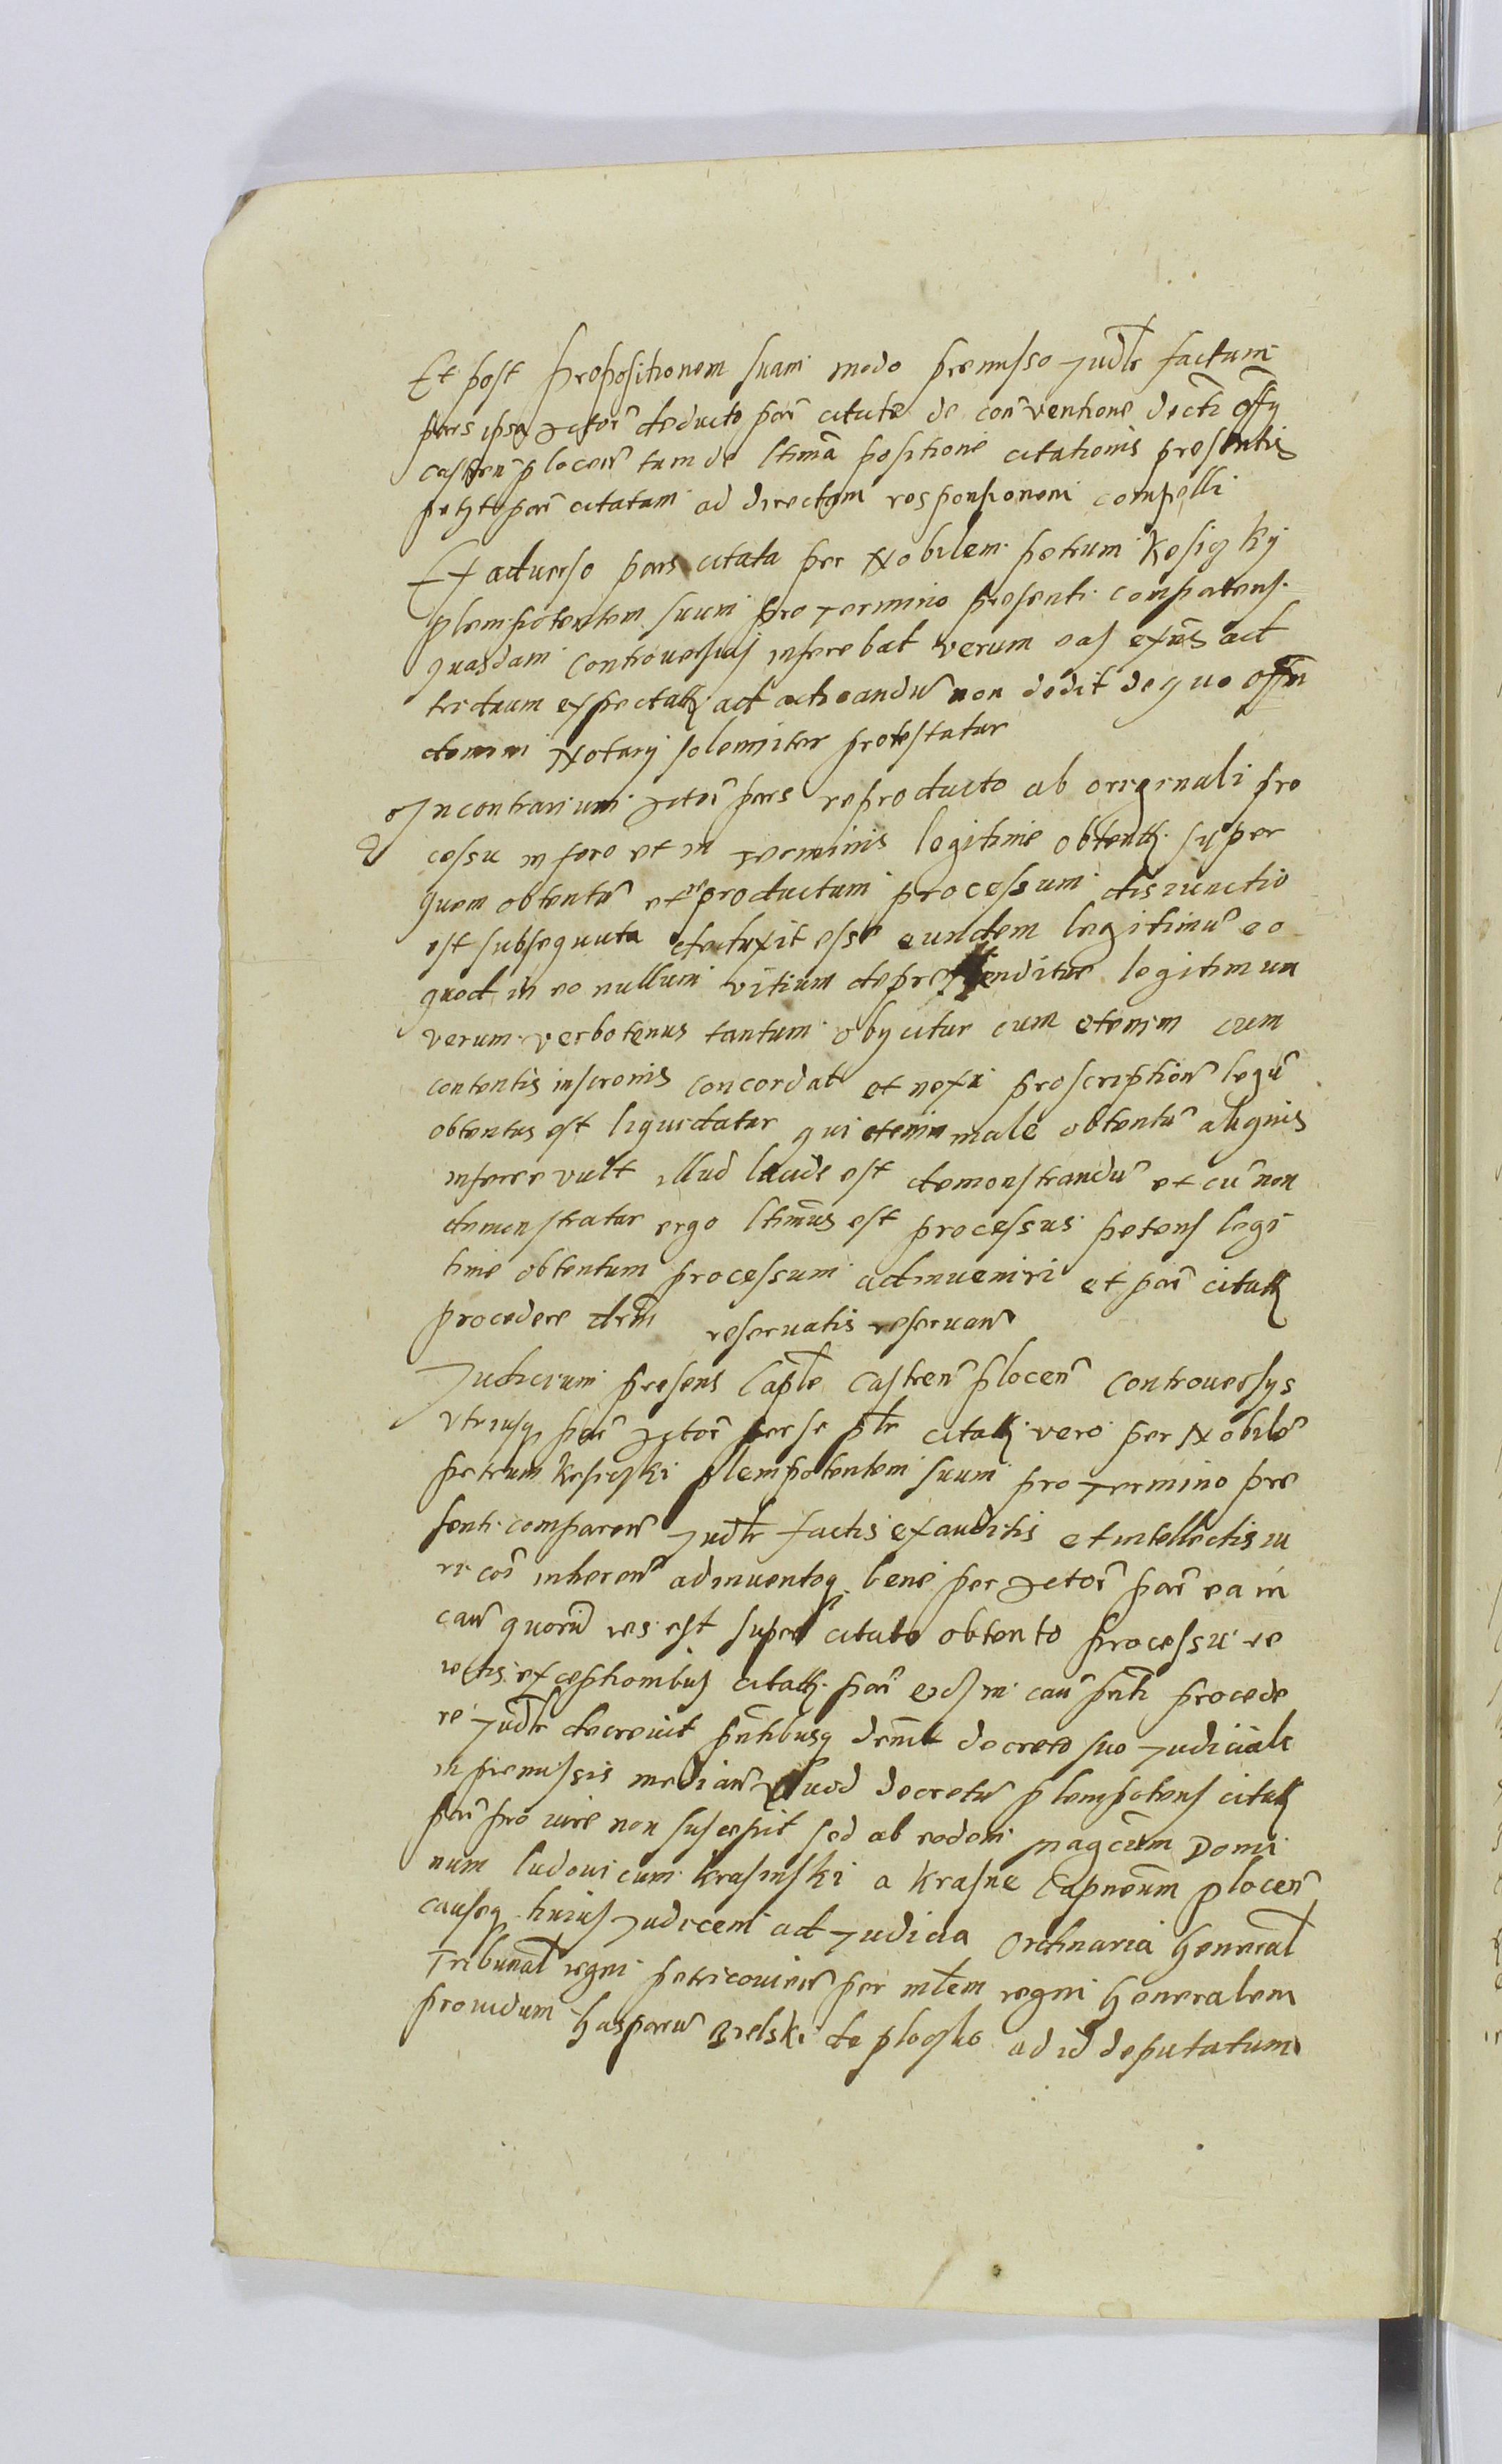 Et post propositionem suam modo premisso Judlr factam
pars ipsa Actor deducto par citate de conventione decti offy
castren plocen tum de ltima positione citationis presentis
petyt par citatam ad directam responsionem compelli
Et adverso pars citata per Nobilem petrum
plenipotentem suum pro termino presenti comparens
quasdam Controversias inferebat verum eas ad
triduum ad acticandu non dedit de quo offn
domini Notary solemniter protestatur
In contrarium Actor pars reproducto ab originali pro
cessu in foro et in terminis legitime obtent super
quem obtentu et productum processum disiunctio
est subsequuta eduxit esse eundem legitimu eo
quod in eo nullum vitium deprehenditur legitimum
verum verbotenus tantum obycitur cum etenim cum
contentis inscronis concordat et nexu proscription
obtentus est liquidatur qui etenim male obtentu aliquis
inferre vult illud lucide est demonstrandu et cu non
demonstratur ergo ltimus est processus petens legi
time obtentum processum adinveniri et par citat
procedere drm reservatis reservan
Judicium presens Caple Castren plocen Controversys
utriusq par Actor per se plr citat vero per Nobile
petrum plenipotentem suum pro termino pre
senti comparen Judlr factis exauditis et intellectis iu
ri coi inheren adinventoq bene per Actor par ea in
cau quoru res est super citato obtento processu re
iectis exceptionibus citat par in cau pnti procede
re Judlr decrevit pntibusq decreto suo Judiciali
in premissis median Quod decretu plenipotens citat
par pro iure non suscepit sed ab eodem Magcum Domi
num ludovicum krasinski a krasne Capneum plocen
causeq huius Judicem ad Judicia Ordinaria General
Tribunal regni petricovien per mlem regni Generalem
providum Gasparu Bielski de ploczko ad id deputatum